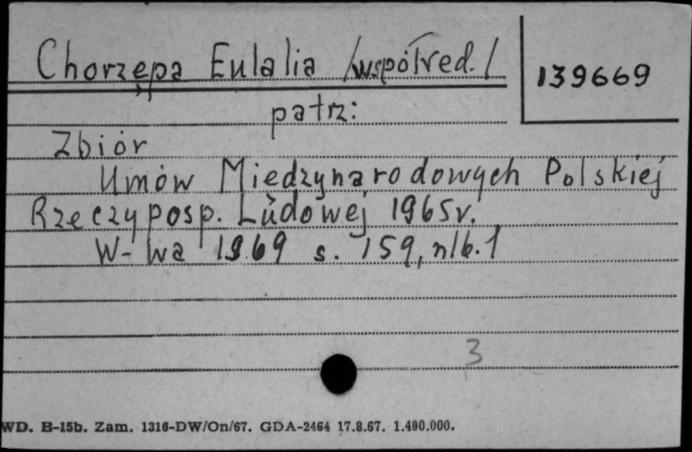 Chorzępa Eulalia /współred./
139669
patrz:
Zbiór
Umów Międzynarodowych Polskiej
Rzeczyposp. Ludowej 1965r.
W-wa 1969 s. 159, nlb. 1
3
WD. B-15b. Zam. 1316-DW/On/67. GDA-2464 17.8.67. 1.400.000.